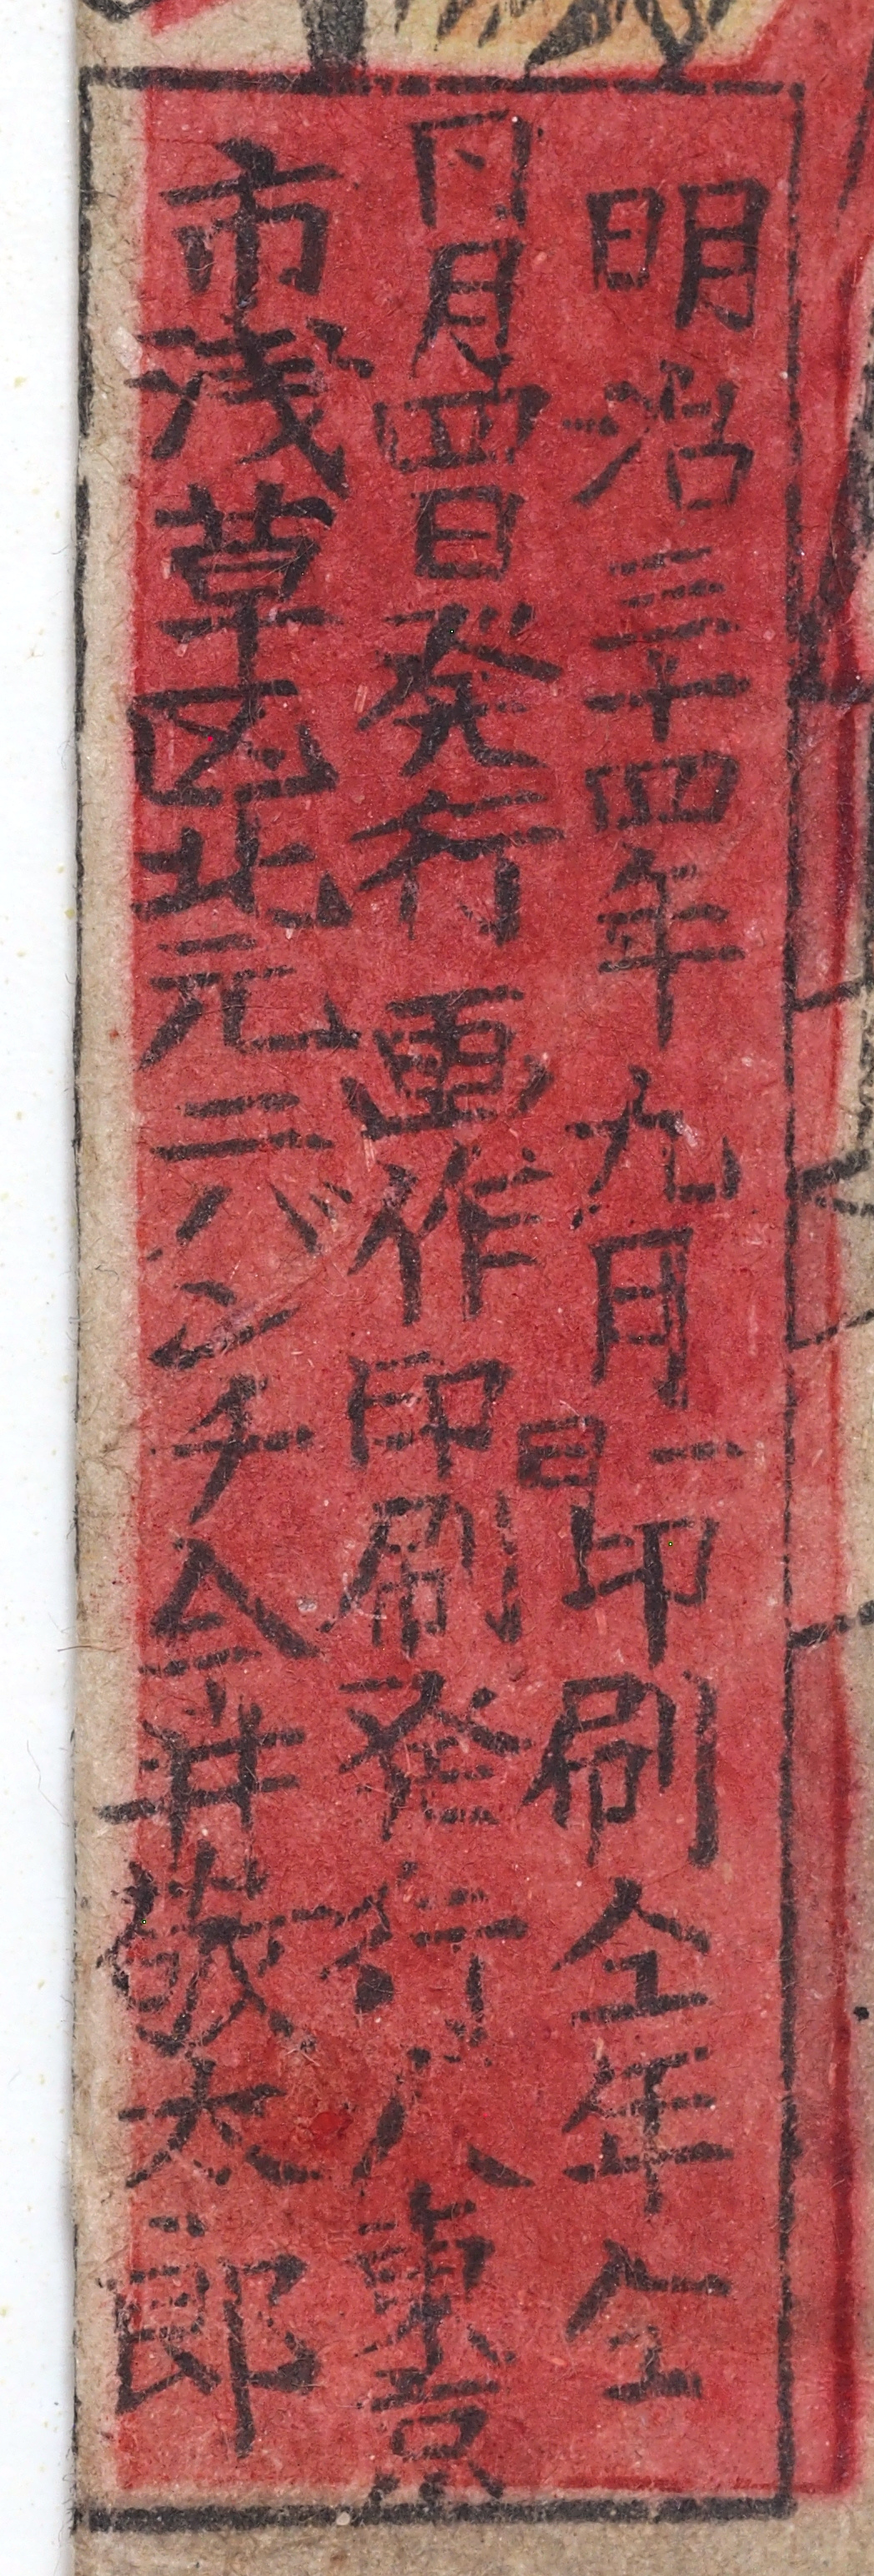 明治三十四年九月一日印刷仝年仝
月四日発行画作印刷発行人東京
市浅草区北元二バンチ井敬太郎